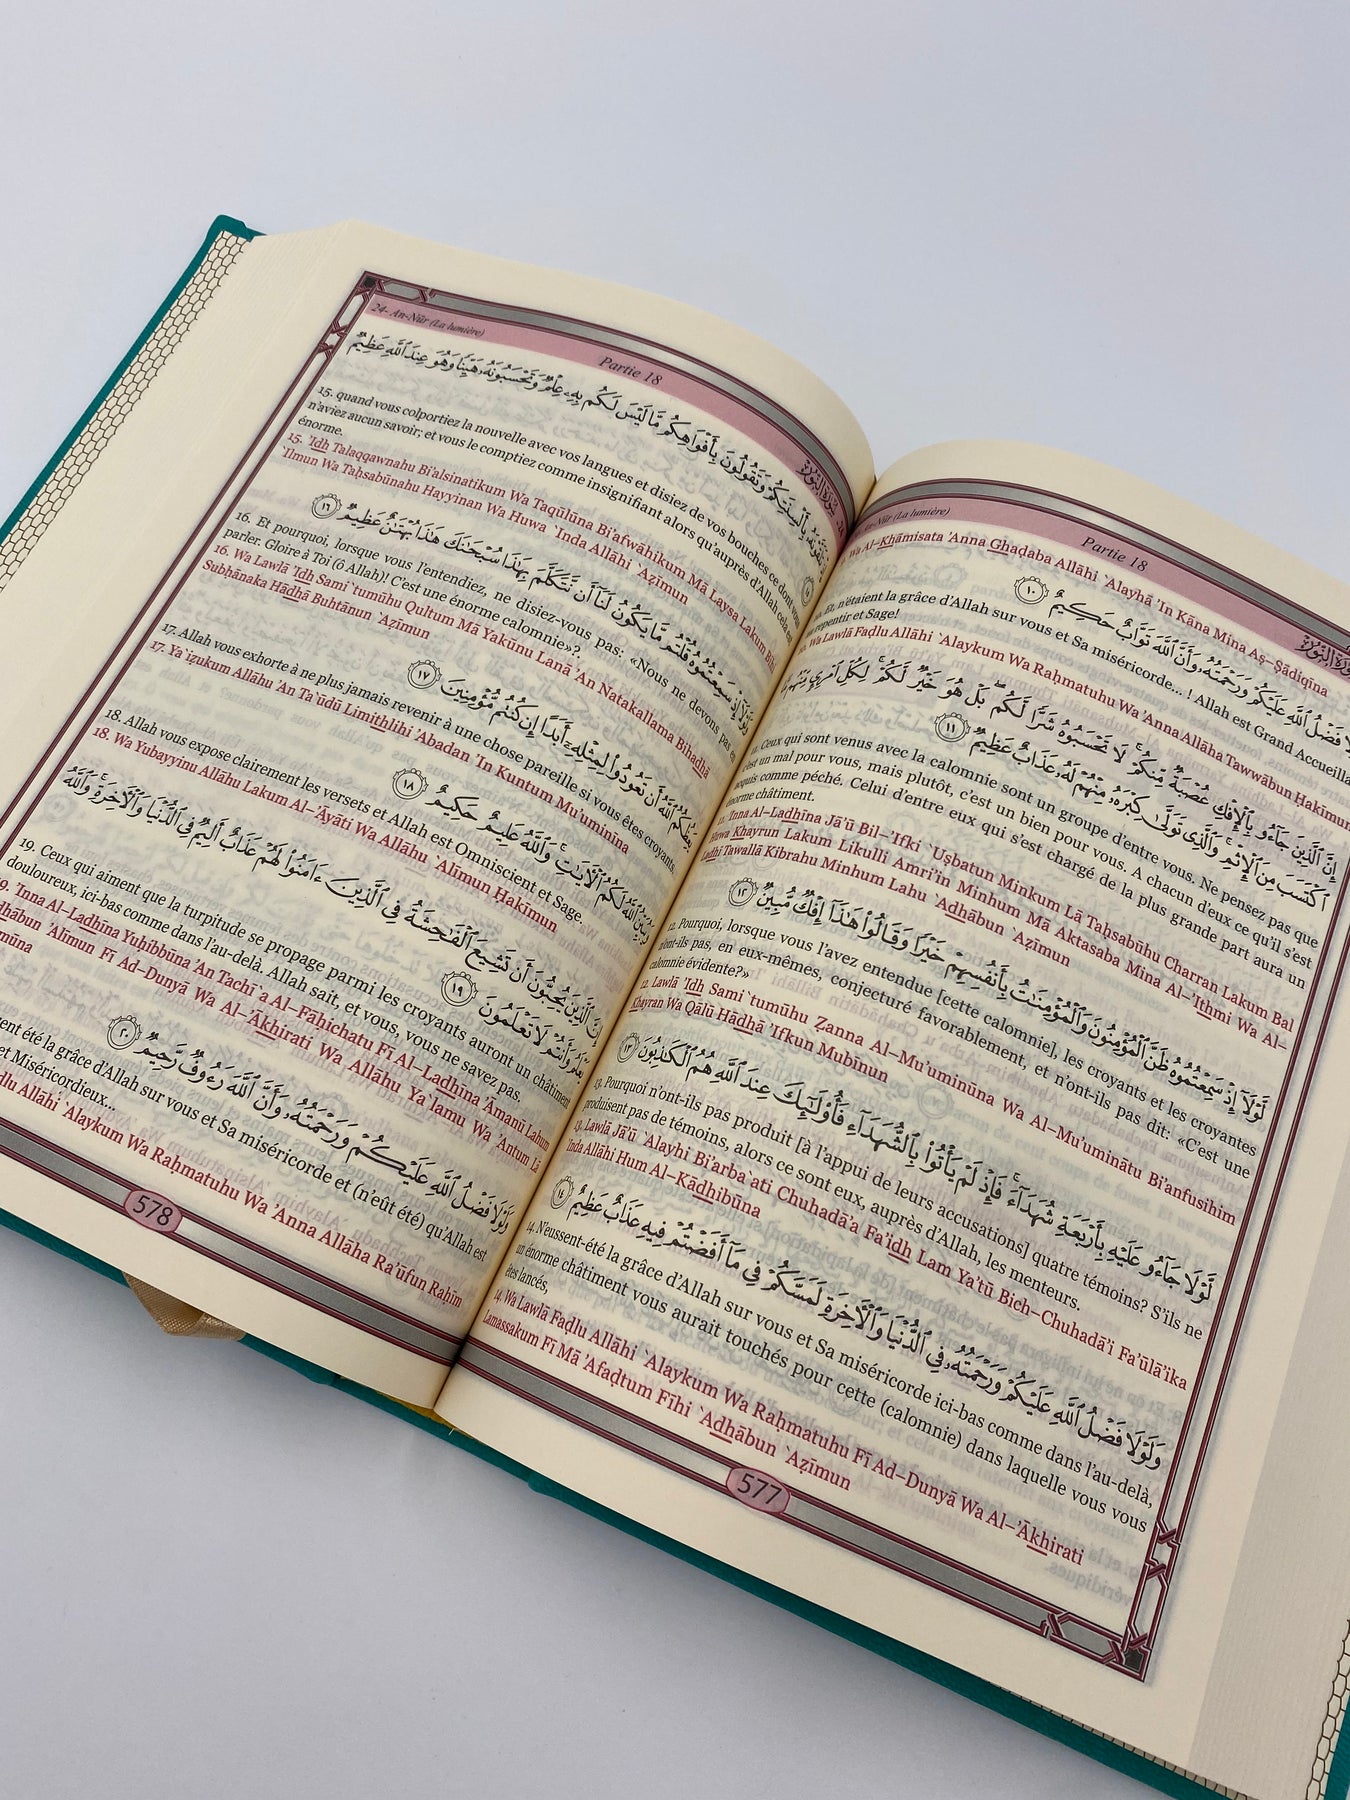 An-Nūr (La lumière) Partie 18
Wa Al–Khāmisata 'Anna Ghaḍaba Allāhi `Alayhā 'In Kāna Mina Aṣ–Ṣādiqīna
فَضْلُ ٱللَّهِ عَلَيْكُمْ وَرَحْمَتُهُۥ وَأَنَّ ٱللَّهَ تَوَّابٌ حَكِيمٌ ١٠
Et, n'étaient la grâce d'Allah sur vous et Sa miséricorde... ! Allah est Grand Accueilla
repentir et Sage!
10. Wa Lawlā Faḍlu Allāhi `Alaykum Wa Raḥmatuhu Wa 'Anna Allāha Tawwābun Ḥakīmun
إِنَّ ٱلَّذِينَ جَآءُو بِٱلْإِفْكِ عُصْبَةٌ مِّنكُمْ ۚ لَا تَحْسَبُوهُ شَرًّا لَّكُم ۖ بَلْ هُوَ خَيْرٌ لَّكُمْ ۚ لِكُلِّ ٱمْرِئٍ مِّنْهُم
ٱكْتَسَبَ مِنَ ٱلْإِثْمِ ۚ وَٱلَّذِى تَوَلَّىٰ كِبْرَهُۥ مِنْهُمْ لَهُۥ عَذَابٌ عَظِيمٌ ١١
11. Ceux qui sont venus avec la calomnie sont un groupe d'entre vous. Ne pensez pas que
c'est un mal pour vous, mais plutôt, c'est un bien pour vous. A chacun d'eux ce qu'il s'est
acquis comme péché. Celui d'entre eux qui s'est chargé de la plus grande part aura un
énorme châtiment.
11. 'Inna Al–Ladhīna Jā'ū Bil–'Ifki `Uṣbatun Minkum Lā Taḥsabūhu Charran Lakum Bal
Huwa Khayrun Lakum Likulli Amri'in Minhum Mā Aktasaba Mina Al–'Ithmi Wa Al–
Ladhī Tawallá Kibrahu Minhum Lahu `Adhābun `Aẓīmun
لَّوْلَآ إِذْ سَمِعْتُمُوهُ ظَنَّ ٱلْمُؤْمِنُونَ وَٱلْمُؤْمِنَٰتُ بِأَنفُسِهِمْ خَيْرًا وَقَالُوا۟ هَٰذَآ إِفْكٌ مُّبِينٌ ١٢
12. Pourquoi, lorsque vous l'avez entendue [cette calomnie], les croyants et les croyantes
n'ont-ils pas, en eux-mêmes, conjecturé favorablement, et n'ont-ils pas dit: «C'est une
calomnie évidente?»
12. Lawlā 'Idh Sami`tumūhu Ẓanna Al–Mu'uminūna Wa Al–Mu'uminātu Bi'anfusihim
Khayran Wa Qālū Hādhā 'Ifkun Mubīnun
لَّوْلَا جَآءُو عَلَيْهِ بِأَرْبَعَةِ شُهَدَآءَ ۚ فَإِذْ لَمْ يَأْتُوا۟ بِٱلشُّهَدَآءِ فَأُو۟لَٰٓئِكَ عِندَ ٱللَّهِ هُمُ ٱلْكَٰذِبُونَ ١٣
13. Pourquoi n'ont-ils pas produit [à l'appui de leurs accusations] quatre témoins? S'ils ne
produisent pas de témoins, alors ce sont eux, auprès d'Allah, les menteurs.
13. Lawlā Jā'ū `Alayhi Bi'arba`ati Chuhadā'a Fa'idh Lam Ya'tū Bich–Chuhadā'i Fa'ūlā'ika
`Inda Allāhi Hum Al–Kādhibūna
وَلَوْلَا فَضْلُ ٱللَّهِ عَلَيْكُمْ وَرَحْمَتُهُۥ فِى ٱلدُّنْيَا وَٱلْءَاخِرَةِ لَمَسَّكُمْ فِى مَآ أَفَضْتُمْ فِيهِ عَذَابٌ عَظِيمٌ ١٤
14. N'eussent-été la grâce d'Allah sur vous et Sa miséricorde ici-bas comme dans l'au-delà,
un énorme châtiment vous aurait touchés pour cette (calomnie) dans laquelle vous vous
êtes lancés,
14. Wa Lawlā Faḍlu Allāhi `Alaykum Wa Raḥmatuhu Fī Ad–Dunyā Wa Al–'Ākhirati
Lamassakum Fī Mā 'Afaḍtum Fīhi `Adhābun `Aẓīmun
577
24- An-Nūr (La lumière) Partie 18 سورة النور
تَلَقَّوْنَهُۥ بِأَلْسِنَتِكُمْ وَتَقُولُونَ بِأَفْوَاهِكُم مَّا لَيْسَ لَكُم بِهِۦ عِلْمٌ وَتَحْسَبُونَهُۥ هَيِّنًا وَهُوَ عِندَ ٱللَّهِ عَظِيمٌ
15. quand vous colportiez la nouvelle avec vos langues et disiez de vos bouches ce dont vous
n'aviez aucun savoir; et vous le comptiez comme insignifiant alors qu'auprès d'Allah cela est
énorme.
15. 'Idh Talaqqawnahu Bi'alsinatikum Wa Taqūlūna Bi'afwāhikum Mā Laysa Lakum Bihi
`Ilmun Wa Taḥsabūnahu Hayyinan Wa Huwa `Inda Allāhi `Aẓīmun
وَلَوْلَآ إِذْ سَمِعْتُمُوهُ قُلْتُم مَّا يَكُونُ لَنَآ أَن نَّتَكَلَّمَ بِهَٰذَا سُبْحَٰنَكَ هَٰذَا بُهْتَٰنٌ عَظِيمٌ ١٦
16. Et pourquoi, lorsque vous l'entendiez, ne disiez-vous pas: «Nous ne devons pas en
parler. Gloire à Toi (ô Allah)! C'est une énorme calomnie»?.
16. Wa Lawlā 'Idh Sami`tumūhu Qultum Mā Yakūnu Lanā 'An Natakallama Bihadhā
Subḥānaka Hādhā Buhtānun `Aẓīmun
يَعِظُكُمُ ٱللَّهُ أَن تَعُودُوا۟ لِمِثْلِهِۦٓ أَبَدًا إِن كُنتُم مُّؤْمِنِينَ ١٧
17. Allah vous exhorte à ne plus jamais revenir à une chose pareille si vous êtes croyants.
17. Ya`iẓukum Allāhu 'An Ta`ūdū Limithlihi 'Abadan 'In Kuntum Mu'uminīna
وَيُبَيِّنُ ٱللَّهُ لَكُمُ ٱلْءَايَٰتِ ۚ وَٱللَّهُ عَلِيمٌ حَكِيمٌ ١٨
18. Allah vous expose clairement les versets et Allah est Omniscient et Sage.
18. Wa Yubayyinu Allāhu Lakum Al–'Āyāti Wa Allāhu `Alīmun Ḥakīmun
إِنَّ ٱلَّذِينَ يُحِبُّونَ أَن تَشِيعَ ٱلْفَٰحِشَةُ فِى ٱلَّذِينَ ءَامَنُوا۟ لَهُمْ عَذَابٌ أَلِيمٌ فِى ٱلدُّنْيَا وَٱلْءَاخِرَةِ ۚ وَٱللَّهُ
يَعْلَمُ وَأَنتُمْ لَا تَعْلَمُونَ ١٩
19. Ceux qui aiment que la turpitude se propage parmi les croyants auront un châtiment
douloureux, ici-bas comme dans l'au-delà. Allah sait, et vous, vous ne savez pas.
9. 'Inna Al–Ladhīna Yuḥibbūna 'An Tachī`a Al–Fāḥichatu Fī Al–Ladhīna 'Āmanū Lahum
dhābun 'Alīmun Fī Ad–Dunyā Wa Al–'Ākhirati Wa Allāhu Ya`lamu Wa 'Antum Lā
mūna
وَلَوْلَا فَضْلُ ٱللَّهِ عَلَيْكُمْ وَرَحْمَتُهُۥ وَأَنَّ ٱللَّهَ رَءُوفٌ رَّحِيمٌ ٢٠
ent été la grâce d'Allah sur vous et Sa miséricorde et (n'eût été) qu'Allah est
et Miséricordieux...
dlu Allāhi `Alaykum Wa Raḥmatuhu Wa 'Anna Allāha Ra'ūfun Raḥīm
578